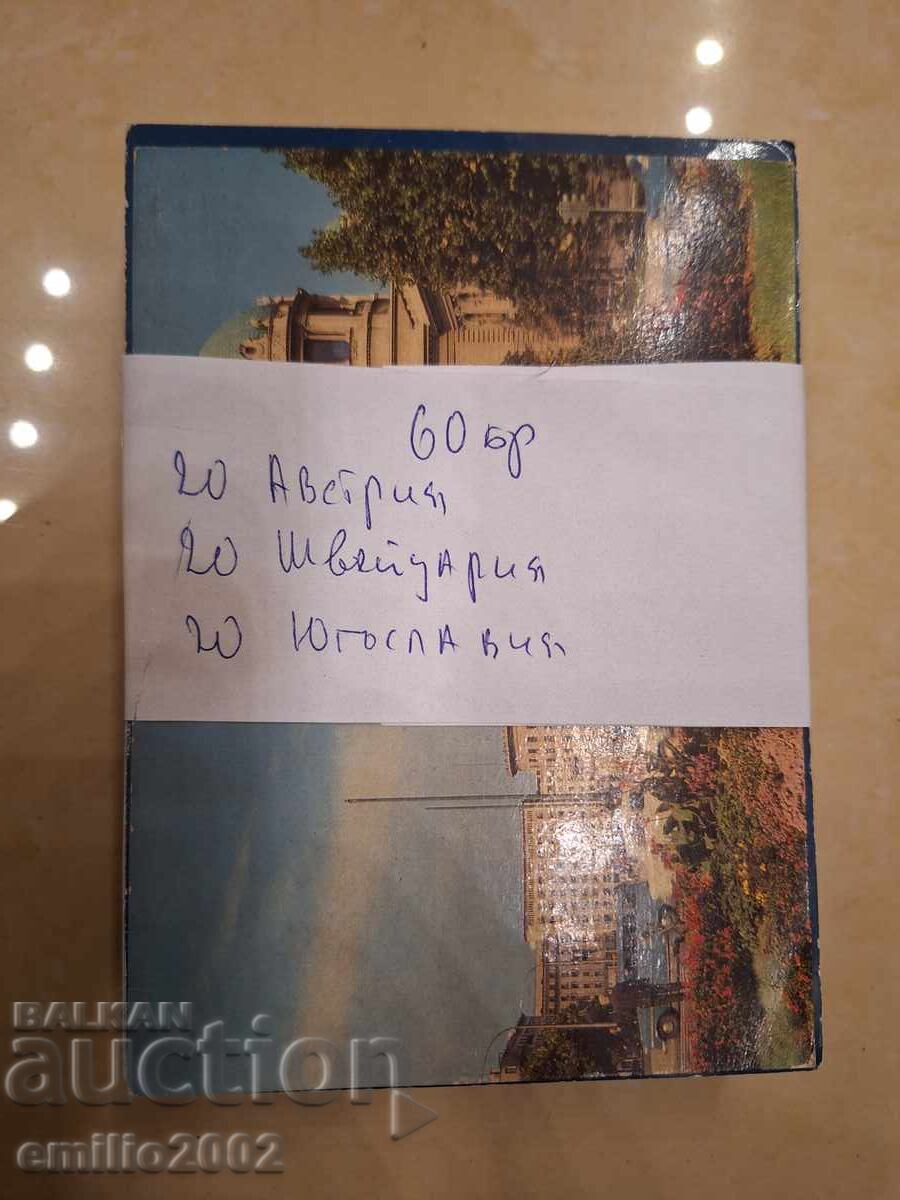 60 бр
20 Австрия
20 Швейцария
20 Югославия
BALKAN
auction
emilio2002